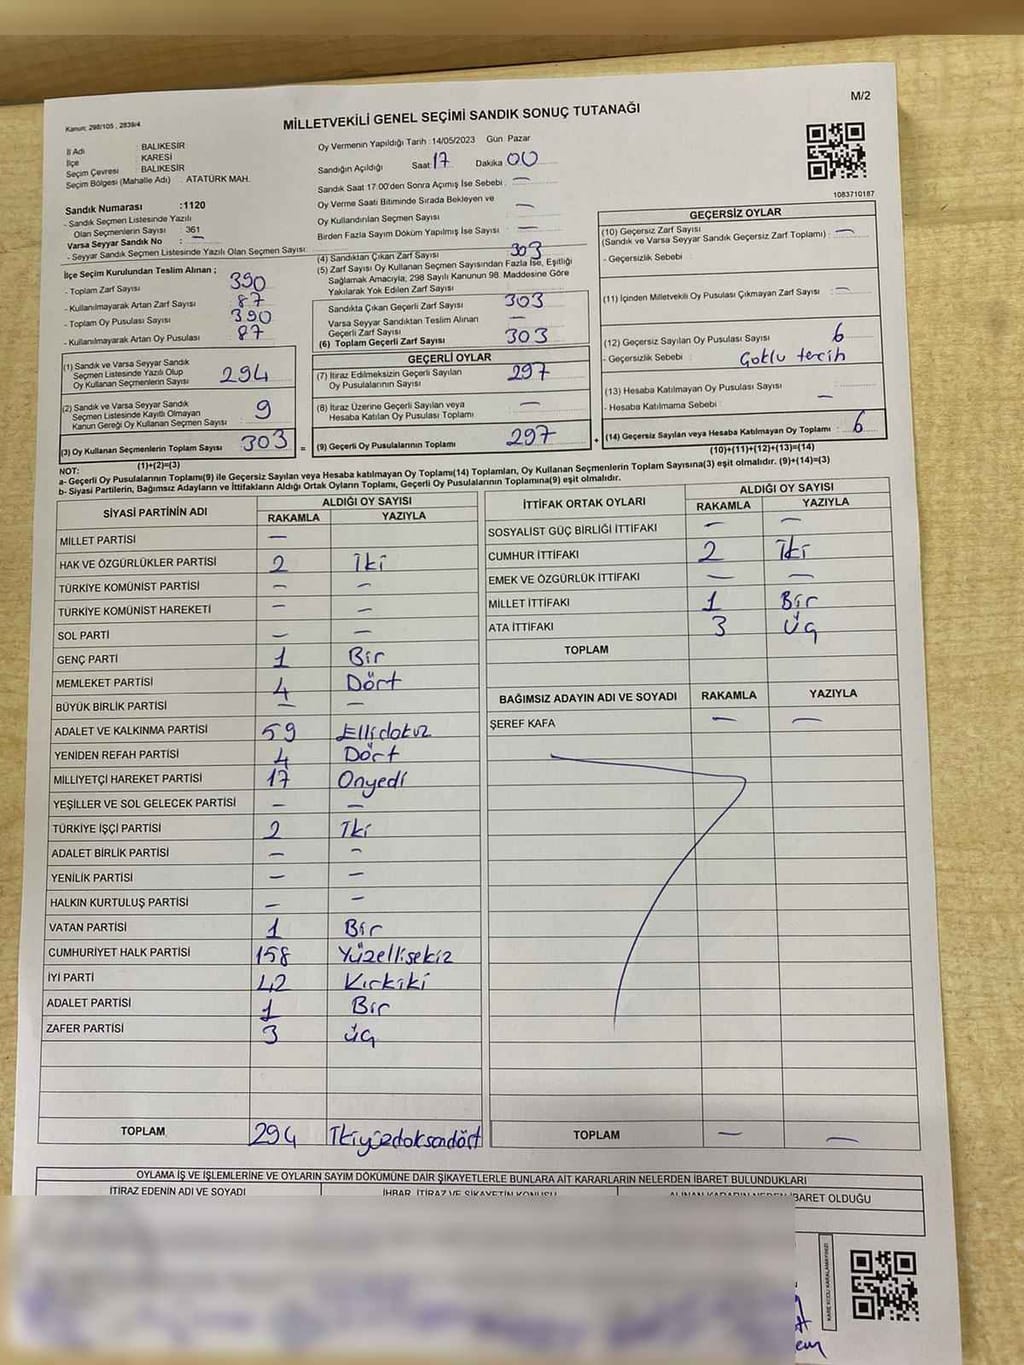 M/2
Kanun: 298/105 , 2839/4
MİLLETVEKİLİ GENEL SEÇİMİ SANDIK SONUÇ TUTANAĞI
İl Adı : BALIKESİR
İlçe : KARESİ
Seçim Çevresi : BALIKESİR
Seçim Bölgesi (Mahalle Adı) : ATATÜRK MAH.
Oy Vermenin Yapıldığı Tarih :14/05/2023 Gün :Pazar
Sandığın Açıldığı Saat: 17 Dakika: 00
Sandık Saat 17:00'den Sonra Açmış İse Sebebi : —
Oy Verme Saati Bitiminde Sırada Bekleyen ve
Oy Kullandırılan Seçmen Sayısı —
Birden Fazla Sayım Döküm Yapılmış İse Sayısı : —
1083710187
Sandık Numarası :1120
- Sandık Seçmen Listesinde Yazılı
Olan Seçmenlerin Sayısı : 361
Varsa Seyyar Sandık No : —
- Seyyar Sandık Seçmen Listesinde Yazılı Olan Seçmen Sayısı:
İlçe Seçim Kurulundan Teslim Alınan ;
- Toplam Zarf Sayısı 390
- Kullanılmayarak Artan Zarf Sayısı 87
- Toplam Oy Pusulası Sayısı 390
- Kullanılmayarak Artan Oy Pusulası 87
(1) Sandık ve Varsa Seyyar Sandık
Seçmen Listesinde Yazılı Olup
Oy Kullanan Seçmenlerin Sayısı 294
(2) Sandık ve Varsa Seyyar Sandık
Seçmen Listesinde Kayıtlı Olmayan
Kanun Gereği Oy Kullanan Seçmen Sayısı 9
(3) Oy Kullanan Seçmenlerin Toplam Sayısı 303
(1)+(2)=(3)
(4) Sandıktan Çıkan Zarf Sayısı 303
(5) Zarf Sayısı Oy Kullanan Seçmen Sayısından Fazla İse, Eşitliği
Sağlamak Amacıyla; 298 Sayılı Kanunun 98. Maddesine Göre
Yakılarak Yok Edilen Zarf Sayısı
Sandıkta Çıkan Geçerli Zarf Sayısı 303
Varsa Seyyar Sandıktan Teslim Alınan
Geçerli Zarf Sayısı —
(6) Toplam Geçerli Zarf Sayısı 303
GEÇERLİ OYLAR
(7) İtiraz Edilmeksizin Geçerli Sayılan
Oy Pusulalarının Sayısı 297
(8) İtiraz Üzerine Geçerli Sayılan veya
Hesaba Katılan Oy Pusulası Toplamı —
= (9) Geçerli Oy Pusulalarının Toplamı 297
GEÇERSİZ OYLAR
(10) Geçersiz Zarf Sayısı
(Sandık ve Varsa Seyyar Sandık Geçersiz Zarf Toplamı) : —
- Geçersizlik Sebebi :
(11) İçinden Milletvekili Oy Pusulası Çıkmayan Zarf Sayısı : —
(12) Geçersiz Sayılan Oy Pusulası Sayısı : 6
- Geçersizlik Sebebi : Çoklu tercih
(13) Hesaba Katılmayan Oy Pusulası Sayısı :
- Hesaba Katılmama Sebebi : —
+ (14) Geçersiz Sayılan veya Hesaba Katılmayan Oy Toplamı : 6
(10)+(11)+(12)+(13)=(14)
NOT:
a- Geçerli Oy Pusulalarının Toplamı(9) ile Geçersiz Sayılan veya Hesaba katılmayan Oy Toplamı(14) Toplamları, Oy Kullanan Seçmenlerin Toplam Sayısına(3) eşit olmalıdır. (9)+(14)=(3)
b- Siyasi Partilerin, Bağımsız Adayların ve İttifakların Aldığı Ortak Oyların Toplamı, Geçerli Oy Pusulalarının Toplamına(9) eşit olmalıdır.
SİYASİ PARTİNİN ADI ALDIĞI OY SAYISI
RAKAMLA YAZIYLA
MİLLET PARTİSİ —
HAK VE ÖZGÜRLÜKLER PARTİSİ 2 İki
TÜRKİYE KOMÜNİST PARTİSİ — —
TÜRKİYE KOMÜNİST HAREKETİ — —
SOL PARTİ — —
GENÇ PARTİ 1 Bir
MEMLEKET PARTİSİ 4 Dört
BÜYÜK BİRLİK PARTİSİ — —
ADALET VE KALKINMA PARTİSİ 59 Ellidokuz
YENİDEN REFAH PARTİSİ 4 Dört
MİLLİYETÇİ HAREKET PARTİSİ 17 Onyedi
YEŞİLLER VE SOL GELECEK PARTİSİ — —
TÜRKİYE İŞÇİ PARTİSİ 2 İki
ADALET BİRLİK PARTİSİ — —
YENİLİK PARTİSİ — —
HALKIN KURTULUŞ PARTİSİ — —
VATAN PARTİSİ 1 Bir
CUMHURİYET HALK PARTİSİ 158 Yüzellisekiz
İYİ PARTİ 42 Kırkiki
ADALET PARTİSİ 1 Bir
ZAFER PARTİSİ 3 Üç
TOPLAM 294 İkiyüzdoksandört
İTTİFAK ORTAK OYLARI ALDIĞI OY SAYISI
RAKAMLA YAZIYLA
SOSYALİST GÜÇ BİRLİĞİ İTTİFAKI — —
CUMHUR İTTİFAKI 2 İki
EMEK VE ÖZGÜRLÜK İTTİFAKI — —
MİLLET İTTİFAKI 1 Bir
ATA İTTİFAKI 3 Üç
TOPLAM
BAĞIMSIZ ADAYIN ADI VE SOYADI RAKAMLA YAZIYLA
ŞEREF KAFA — —
TOPLAM — —
OYLAMA İŞ VE İŞLEMLERİNE VE OYLARIN SAYIM DÖKÜMÜNE DAİR ŞİKAYETLERLE BUNLARA AİT KARARLARIN NELERDEN İBARET BULUNDUKLARI
İTİRAZ EDENİN ADI VE SOYADI İHBAR, İTİRAZ VE ŞİKAYETİN KONUSU ALINAN KARARIN NEDEN İBARET OLDUĞU
KARE KODU KARALAMAYINIZ!